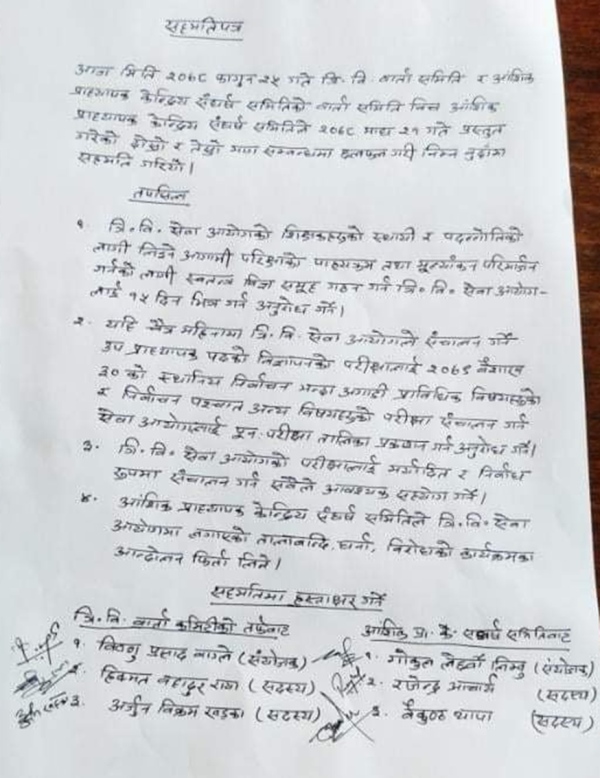 सहमतिपत्र
आज मिति २०७८ फागुन २५ गते त्रि. वि. वार्ता समिति र आंशिक
प्राध्यापक केन्द्रिय संघर्ष समितिको वार्ता समिति बिच आंशिक
प्राध्यापक केन्द्रिय संघर्ष समितिले २०७८ माघ २१ गते प्रस्तुत
गरेको दोश्रो र तेश्रो माग सम्बन्धमा छलफल गरी निम्न बुदाँमा
सहमति गरियो।
तपसिल
१. त्रि. वि. सेवा आयोगको शिक्षकहरुको स्थायी र पदोन्नोतिको
लागी लिइने आगामी परिक्षाको पाठ्यक्रम तथा मूल्यांकन परिमार्जन
गर्नको लागी स्वतन्त्र विज्ञ समूह गठन गर्न त्रि. वि. सेवा आयोग-
लाई १५ दिन भित्र गर्न अनुरोध गर्ने।
२. यहि चैत्र महिनामा त्रि. वि. सेवा आयोगले संचालन गर्ने
उप प्राध्यापक पदको विज्ञापनको परीक्षालाई २०७९ वैशाख
३० को स्थानिय निर्वाचन भन्दा अगाडी प्राविधिक विषयहरुको
र निर्वाचन पश्चात अन्य विषयहरुको परीक्षा संचालन गर्न
सेवा आयोगलाई पून: परीक्षा तालिका प्रकाशन गर्न अनुरोध गर्ने।
३. त्रि. वि. सेवा आयोगको परीक्षालाई मर्यादित र निर्वाध
रुपमा संचालन गर्न सबैले आवश्यक सहयोग गर्ने।
४. आंशिक प्राध्यापक केन्द्रिय संघर्ष समितिले त्रि. वि. सेवा
आयोगमा लगाएको तालाबन्दि, धर्ना, विरोधको कार्यक्रमका
आन्दोलन फिर्ता लिने।
सहमतिमा हस्ताक्षर गर्ने
त्रि. वि. वार्ता कमिटीको तर्फबाट
१. विष्णु प्रसाद वाग्ले (संयोजक)
२. हिक्मत बहादुर राया (सदस्य)
३. अर्जुन विक्रम खड्का (सदस्य)
आंशिक प्रा. के. संघर्ष समितिबाट
१. गोकुल लेहवाँ लिम्बु (संयोजक)
२. राजेन्द्र आचार्य (सदस्य)
३. वैकुण्ठ थापा (सदस्य)